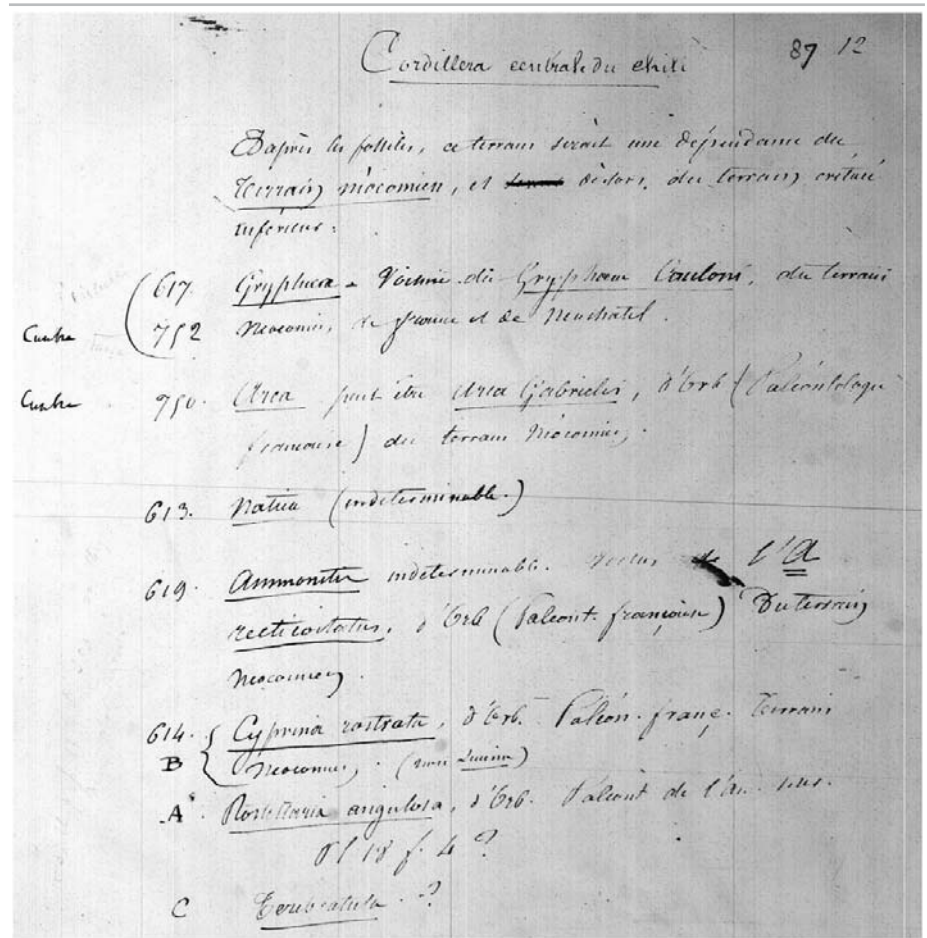 87 12
Cordillera centrale du chili
D'après les fossiles, ce terrain serait une dépendance du
terrain néocomien, et dèslors, du terrain crétacé
inférieur.
617. Gryphaea - Voisine du Gryphaea Couloni, du terrain
Cumbre 752 Neocomien, de france et de Neuchatel.
Cumbre 750. Arca peut être Arca Gabrielis, d'Orb (Paléontologie
francaise) du terrain Néocomien.
613. Natica (indeterminable.)
619. Ammonites indeterminable. l'A
recticostatus, d'Orb (Paleont. françoise) Du terrain
Neocomien.
614. Cyprina rostrata, d'Orb. Paléon. franç. Terrain
B Neocomien. (
A. Rostellaria angulosa, d'Orb. Paleont de l'am. mer.
Pl 18 f. 4 ?
C Terebratula. ?